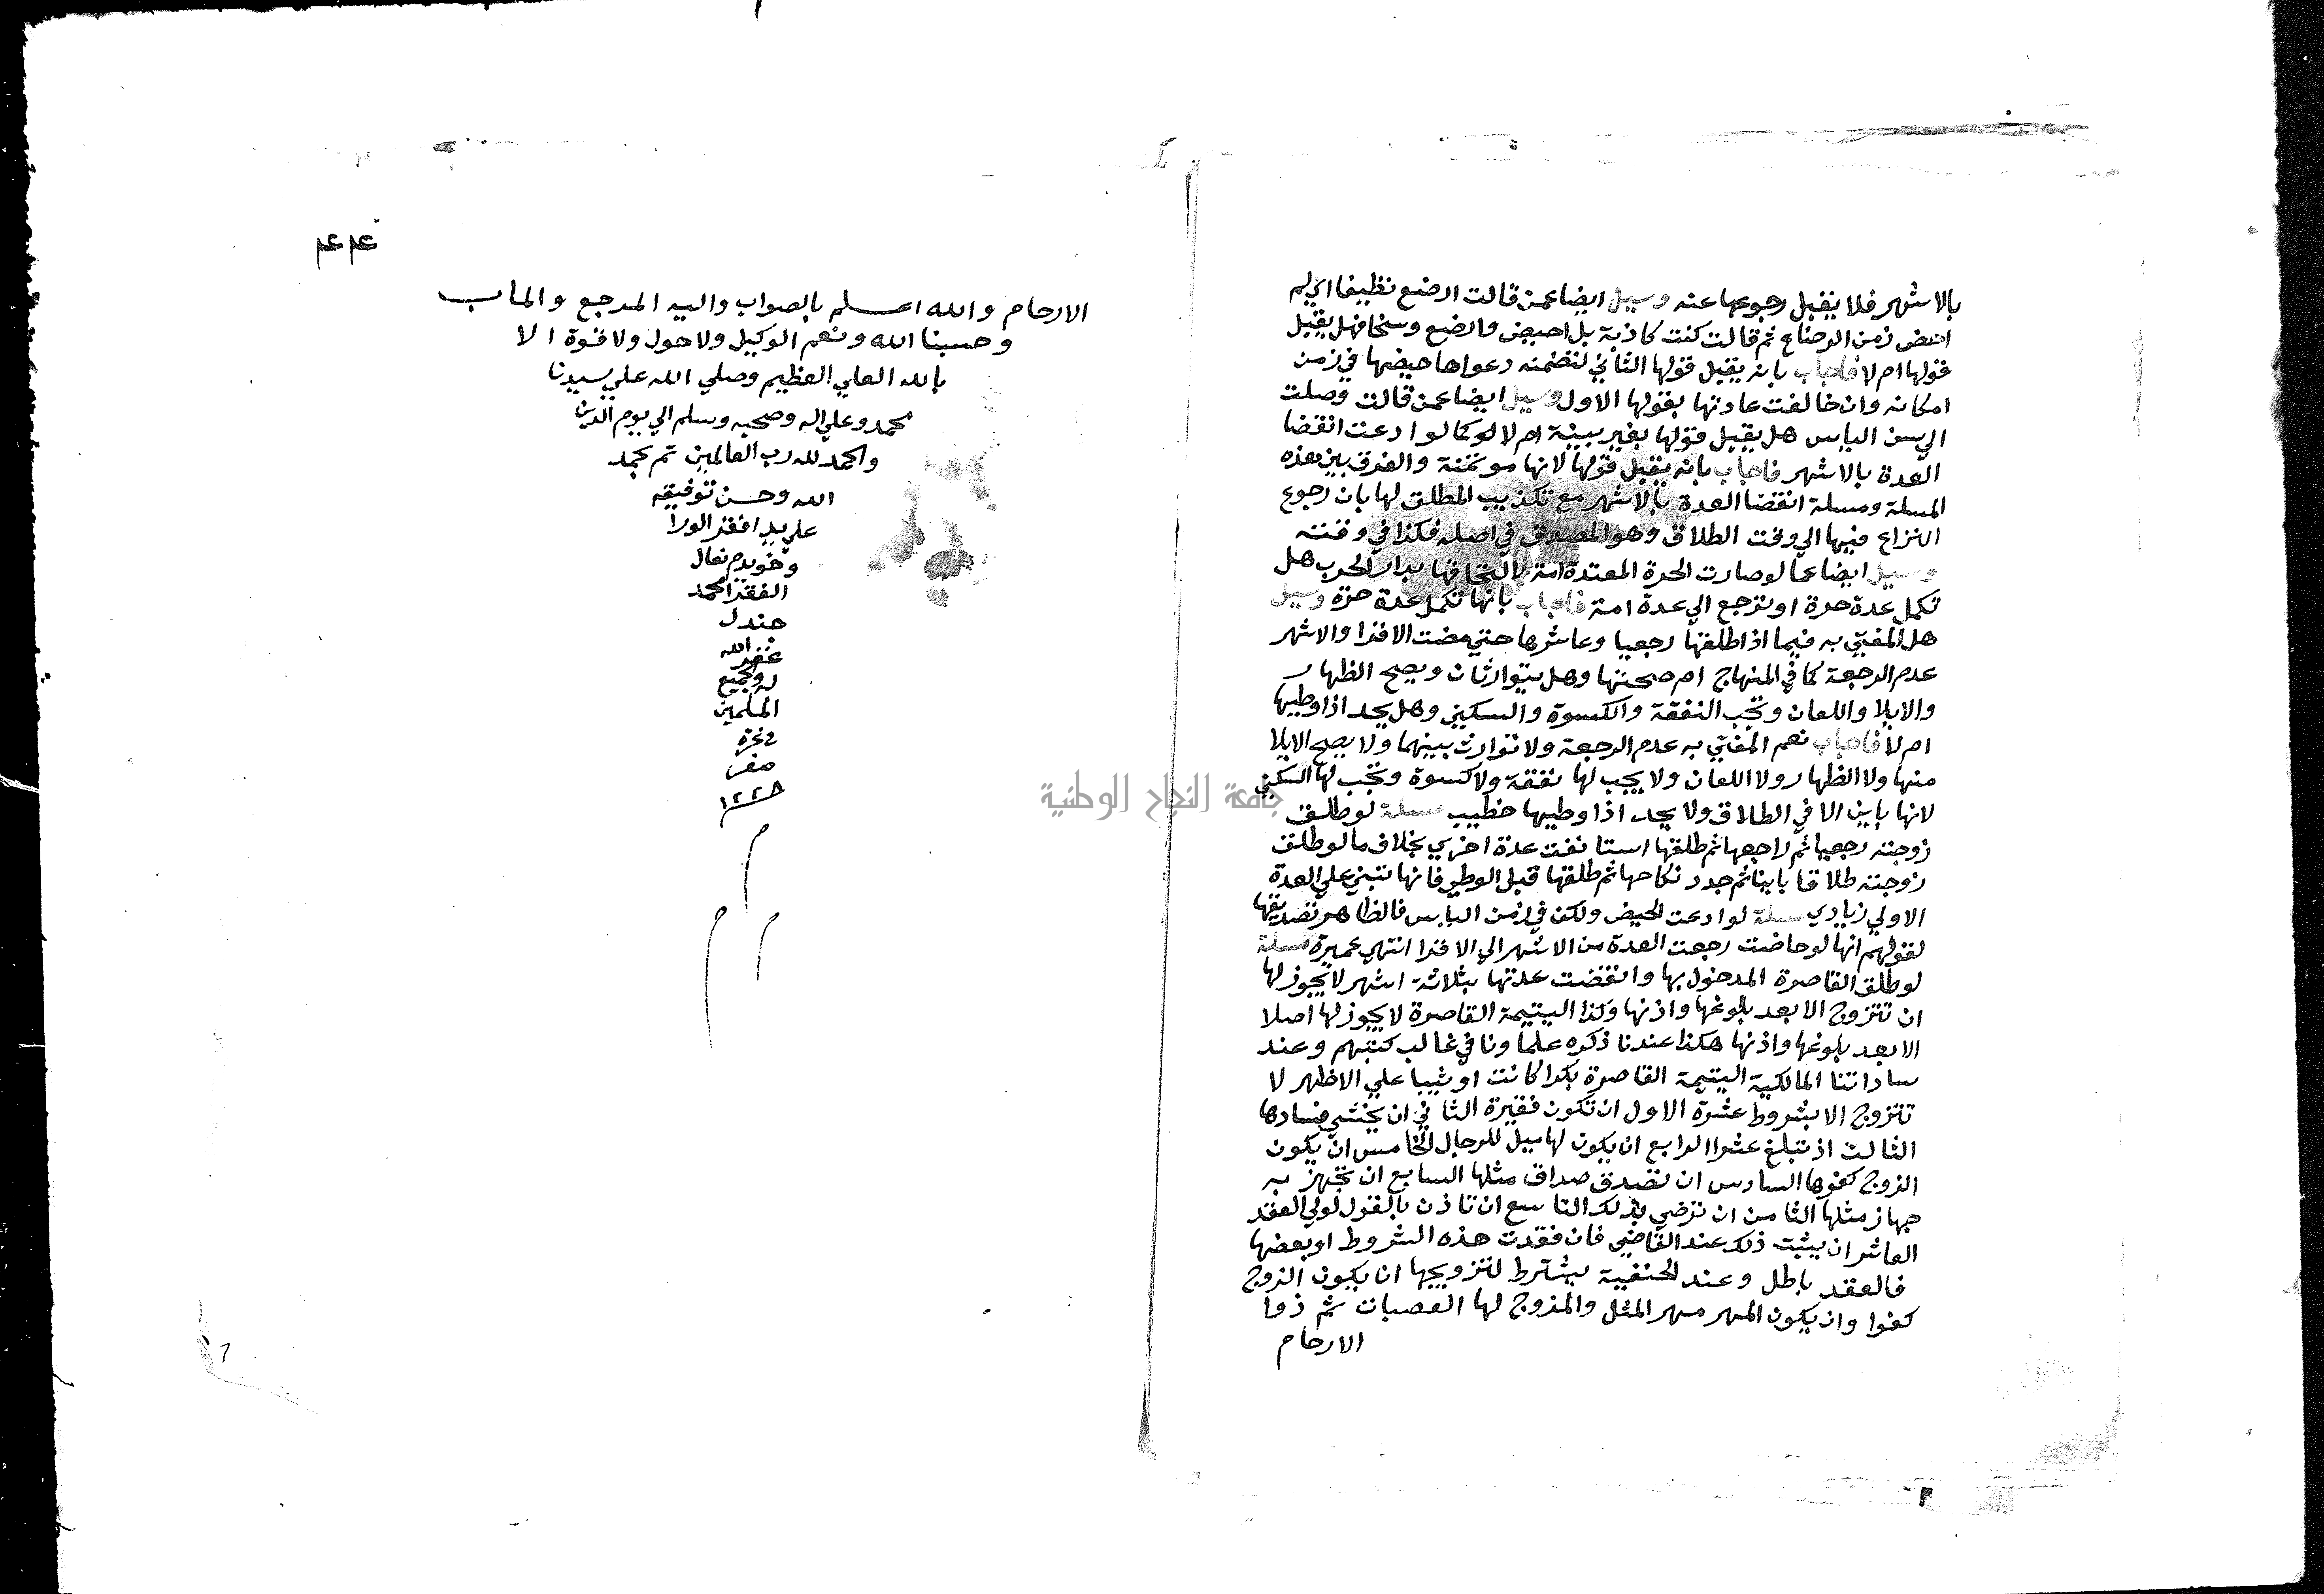 بالاشهر فلا يقبل رجوعها عنه وسيل ايضا عمن قالت ارضع نظيفا اي لم
احض زمن الرضاع ثم قالت كنت كاذبة بل احيض وارضع وسخا فهل يقبل
قولها ام لا فاجاب بانه يقبل قولها الثاني لتضمنه دعواها حيضها في زمن
امكانه وان خالفت عادتها بقولها الاول وسيل ايضا عمن قالت وصلت
الي سن الياس هل يقبل قولها بغير بينة ام لا لو كما لو ادعت انقضا
العدة بالاشهر فاجاب بانه يقبل قولها لانها موتمنة والفرق بين هذه
المسلة ومسلة انقضا العدة بالاشهر مع تكذيب المطلق لها بان رجوع
النزاع فيها الي وقت الطلاق وهو المصدق في اصله فكذا في وقته
وسيل ايضا عما لو صارت الحرة المعتدة امة لالتحاقها بدار الحرب هل
تكمل عدة حرة او ترجع الي عدة امة فاجاب بانها تكمل عدة حرة وسيل
هل المفتي به فيما اذا طلقها رجعيا وعاشرها حتي مضت الاقرا والاشهر
عدم الرجعة كما في المنهاج ام صحتها وهل يتوارثان ويصح الظهار
والايلا واللعان وتجب النفقة والكسوة والسكني وهل يحد اذا وطيها
ام لا فاجاب نعم المفتي به عدم الرجعة ولا توارث بينهما ولا يصح الايلا
منها ولا الظهار ولا اللعان ولا يجب لها نفقة ولا كسوة وتجب لها السكني
لانها باين الا في الطلاق ولا يحد اذا وطيها خطيب مسلة لو طلق
زوجته رجعيا ثم راجعها ثم طلقها استانفت عدة اخري بخلاف ما لو طلق
زوجته طلاقا باينا ثم جدد نكاحها ثم طلقها قبل الوطي فانها تبني علي العدة
الاولي زيادي مسلة لو ادعت الحيض ولكن في زمن الياس فالظاهر تصديقها
لقولهم انها لو حاضت رجعت العدة من الاشهر الي الاقرا انتهي عميرة مسلة
لو طلق القاصرة المدخول بها وانقضت عدتها بثلاثة اشهر لا يجوز لها
ان تتزوج الا بعد بلوغها واذنها وكذا اليتيمة القاصرة لا يجوز لها اصلا
الا بعد بلوغها واذنها هكذا عندنا ذكره علماونا في غالب كتبهم وعند
ساداتنا المالكية اليتيمة القاصرة بكرا كانت او ثيبا علي الاظهر لا
تتزوج الا بشروط عشرة الاول ان تكون فقيرة الثاني ان يخشي فسادها
الثالث ان تبلغ عشرا الرابع ان يكون لها ميل للرجال الخامس ان يكون
الزوج كفوها السادس ان تصدق صداق مثلها السابع ان تجهز به
جهاز مثلها الثامن ان ترضي بذلك التاسع ان تاذن بالقول لولي العقد
العاشر ان يثبت ذلك عند القاضي فان فقدت هذه الشروط او بعضها
فالعقد باطل وعند الحنفية يشترط لتزويجها ان يكون الزوج
كفوا وان يكون المهر مهر المثل والمزوج لها العصبات ثم ذوا
الارحام
٤٤
الارحام والله اعلم بالصواب واليه المرجع والماب
وحسبنا الله ونعم الوكيل ولا حول ولا قوة الا
بالله العلي العظيم وصلي الله علي سيدنا
محمد وعلي اله وصحبه وسلم الي يوم الدين
والحمد لله رب العالمين تم بحمد
الله وحسن توفيقه
علي يد افقر الورا
وخويدم نعال
الفقرا محمد
حندل
غفر الله
له ولجميع
المسلمين
في غرة
صفر
١٢٢٨
م
م م
جامعة النجاح الوطنية